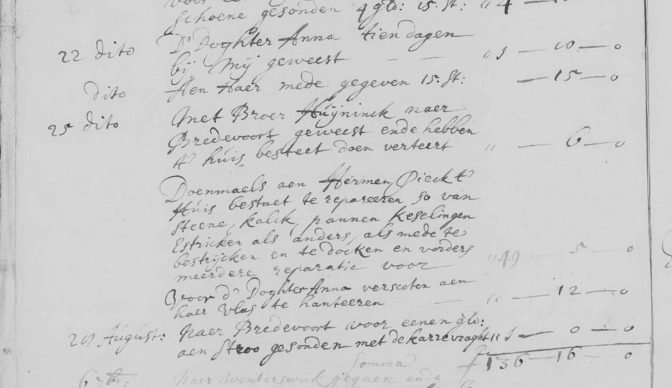 Schoene gesonden 4 glo: 15. st: " 4 —
22 dito D'Doghter Anna tien dagen
bij mij geweest — — " 3 — 10 — 0
dito Hen Haer mede gegeven 15. st: — 15 — 0
25 dito Met Broer Huijninck naer
Bredevoort geweest ende hebben
t' huis besteet doen verteert " — 6 — 0
Doenmaels aen Hermen Pieck t'
Huis bestaet te repareeren so van
steene, kalck, pannen keselingen
Estricken als anders, als mede te
bestrijcken en te docken en vorders
meerdere reparatie voor " 49 — 5 — 0
Voor d' Doghter Anna verscoten aen
haer vlas te hanteeren — " — 12 — 0
20 August: Naer Bredevoort voor eenen glo:
aen stroo gesonden met de karrevraght " 1 — 0 — 0
Somma f 136 — 16 — 0
Naer Wenterswick gegaen